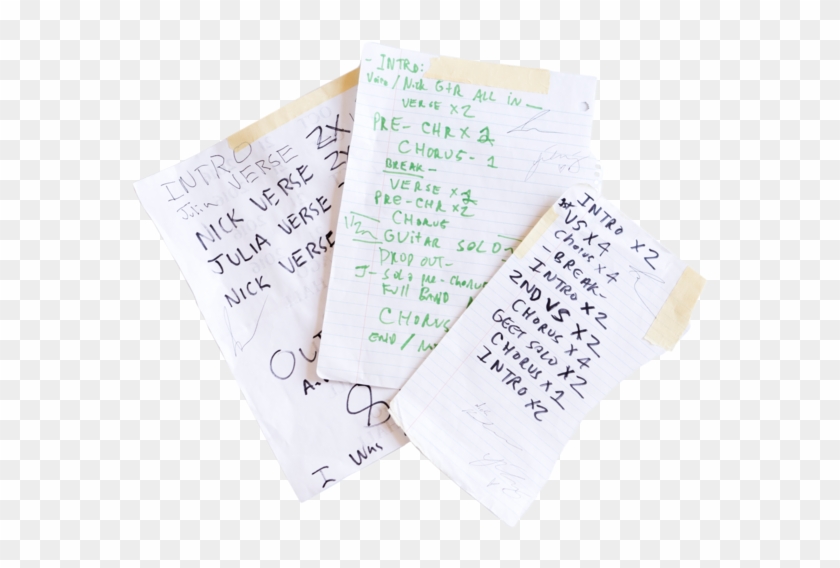 INTRO VERSE 2X
Julia
NICK VERSE 2X
JULIA VERSE
NICK VERSE
I Was
- INTRO:
Voice / Nick GtR ALL IN —
VERSE X2
PRE- CHR X 2
CHORUS - 1
BREAK -
VERSE X2
PRE-CHR X2
CHORUS
GUitAR SOLO
DROP OUT-
J- Solo pre-chorus
FUll BAND
CHORUS
END /
INTRO X2
1st VS X 4
Chorus x 4
- BREAK -
INTRO X2
2ND VS X 2
CHORUS X 4
GEET SOLO X2
CHORUS X 1
INTRO X2